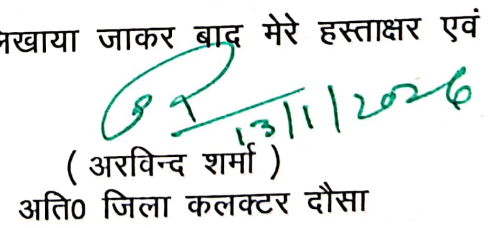 लिखाया जाकर बाद मेरे हस्ताक्षर एवं
13/1/2026
( अरविन्द शर्मा )
अति0 जिला कलक्टर दौसा